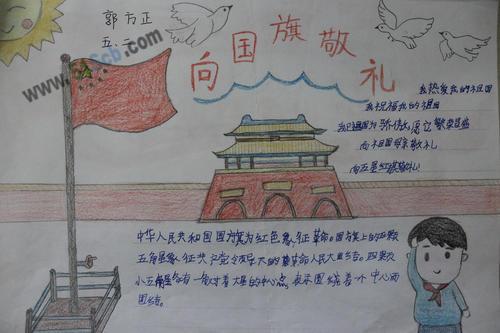 郭方正
五.二
向国旗敬礼
我热爱我的祖国
我祝福我的祖国
向祖国母亲敬礼
向五星红旗敬礼
中华人民共和国国旗为红色象征革命。国旗上的五颗
五角星象征共产党领导的革命人民大团结。四颗
小五角星各有一角对着大星的中心点,表示围绕着一个中心而
团结。